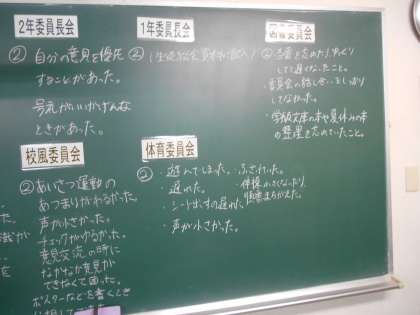 2年委員長会
② 自分の意見を優先
することがあった。
号令がいいかげんな
ときがあった。
1年委員長会
②
図書委員会
②
して遅くなったこと。
・委員会の話し合いをしっかり
しなかった。
・学級文庫の本や夏休みの本
の整理を忘れていたこと。
校風委員会
② あいさつ運動の
あつまりがわるかった。
声が小さかった。
チェックがゆるかった。
意見交流の時に
なかなか意見が
できなくて困った。
ポスターなどを書くとき
体育委員会
② ・遊んでしまった。・ふざけていた。
・遅れた。
・シート出すの遅れた。
・声が小さかった。
・体操が小さくなったり、
順番まちがえた。